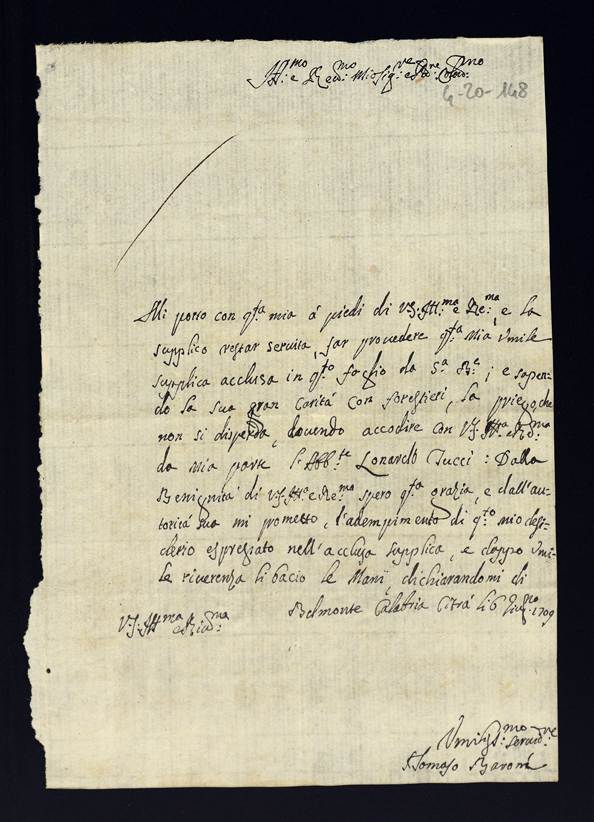 Ill:mo e Rev:mo Mio Sig:re e P̃ro͂n Colen:mo
4-20-148
Mi porto con q̃ta mia á piedi di V:S: Ill:ma e Re:ma, e la
supplico restar servita, far provedere q̃ta Mia Vmile
supplica acclusa in q̃to foglio da S:a ; e sapen-
do la sua gran caritá con foregtieri, la priego, che
non si disperda, dovendo accodire con V:S: Ill:ma e Rd:ma
da Mia parte l'Abb:te Lonardo Tucci: Dalla
Benignitá di V:S: Ill:ma e Re:ma spero q̃ta grazia, e dall'au-
toritá sua mi prometto, l'adempimento di q̃to mio desi-
derio espressato nell'acclusa supplica, e doppo Vmi-
le riverenza li bacio le Mani, dichiarandomi di
V:S: Ill:ma e Rev:ma Belmonte Calabria Citrá li 6 1709
Vmiliss:mo Servid:re
Tomaso Baroni